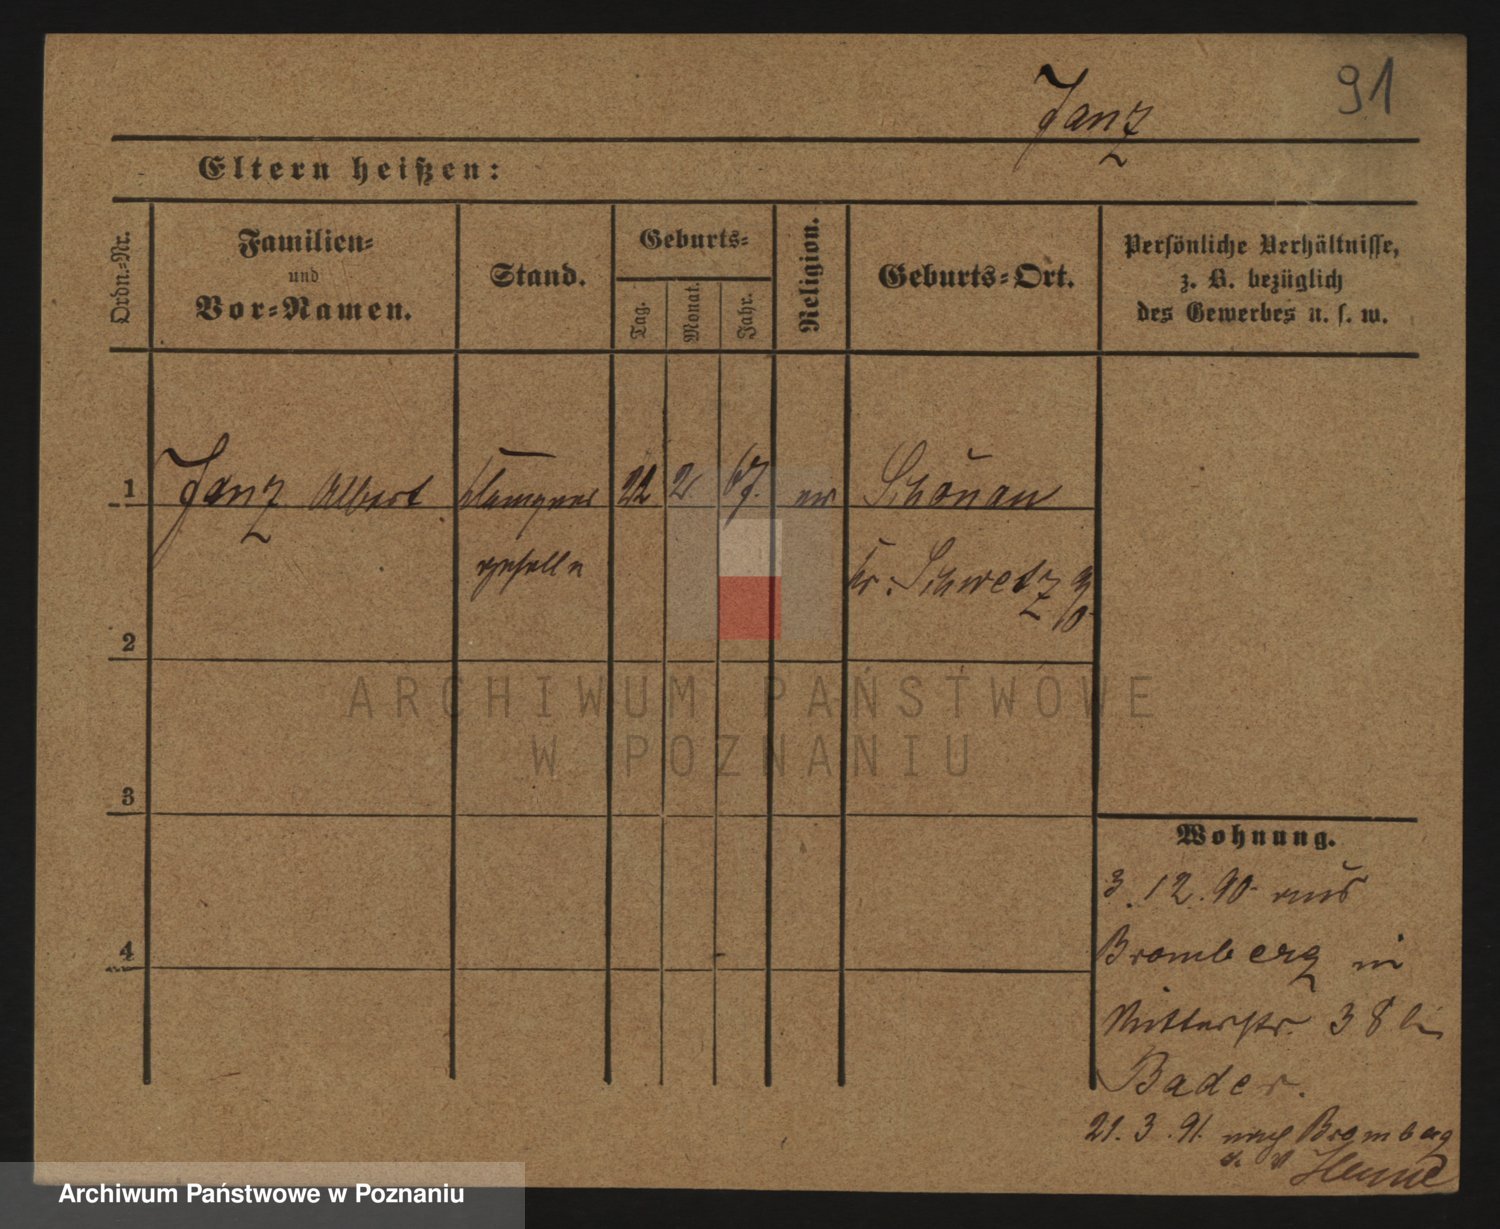 Janz
91
Eltern heißen:
Ordn.-Nr.
Familien-
und
Vor-Namen.
Stand.
Geburts-
Tag.
Monat.
Jahr.
Religion.
Geburts-Ort.
Persönliche Verhältnisse,
z. B. bezüglich
des Gewerbes u. s. w.
1 Janz Albert Klempner 22 2 67. ev Schönau
geselle Kr. Schwetz
2
ARCHIWUM PAŃSTWOWE
W POZNANIU
3
Wohnung.
3. 12. 90 aus
4
Bromberg in
Ritterstr. 38 bei
Bader.
21. 3. 91. nach Bromberg
Archiwum Państwowe w Poznaniu